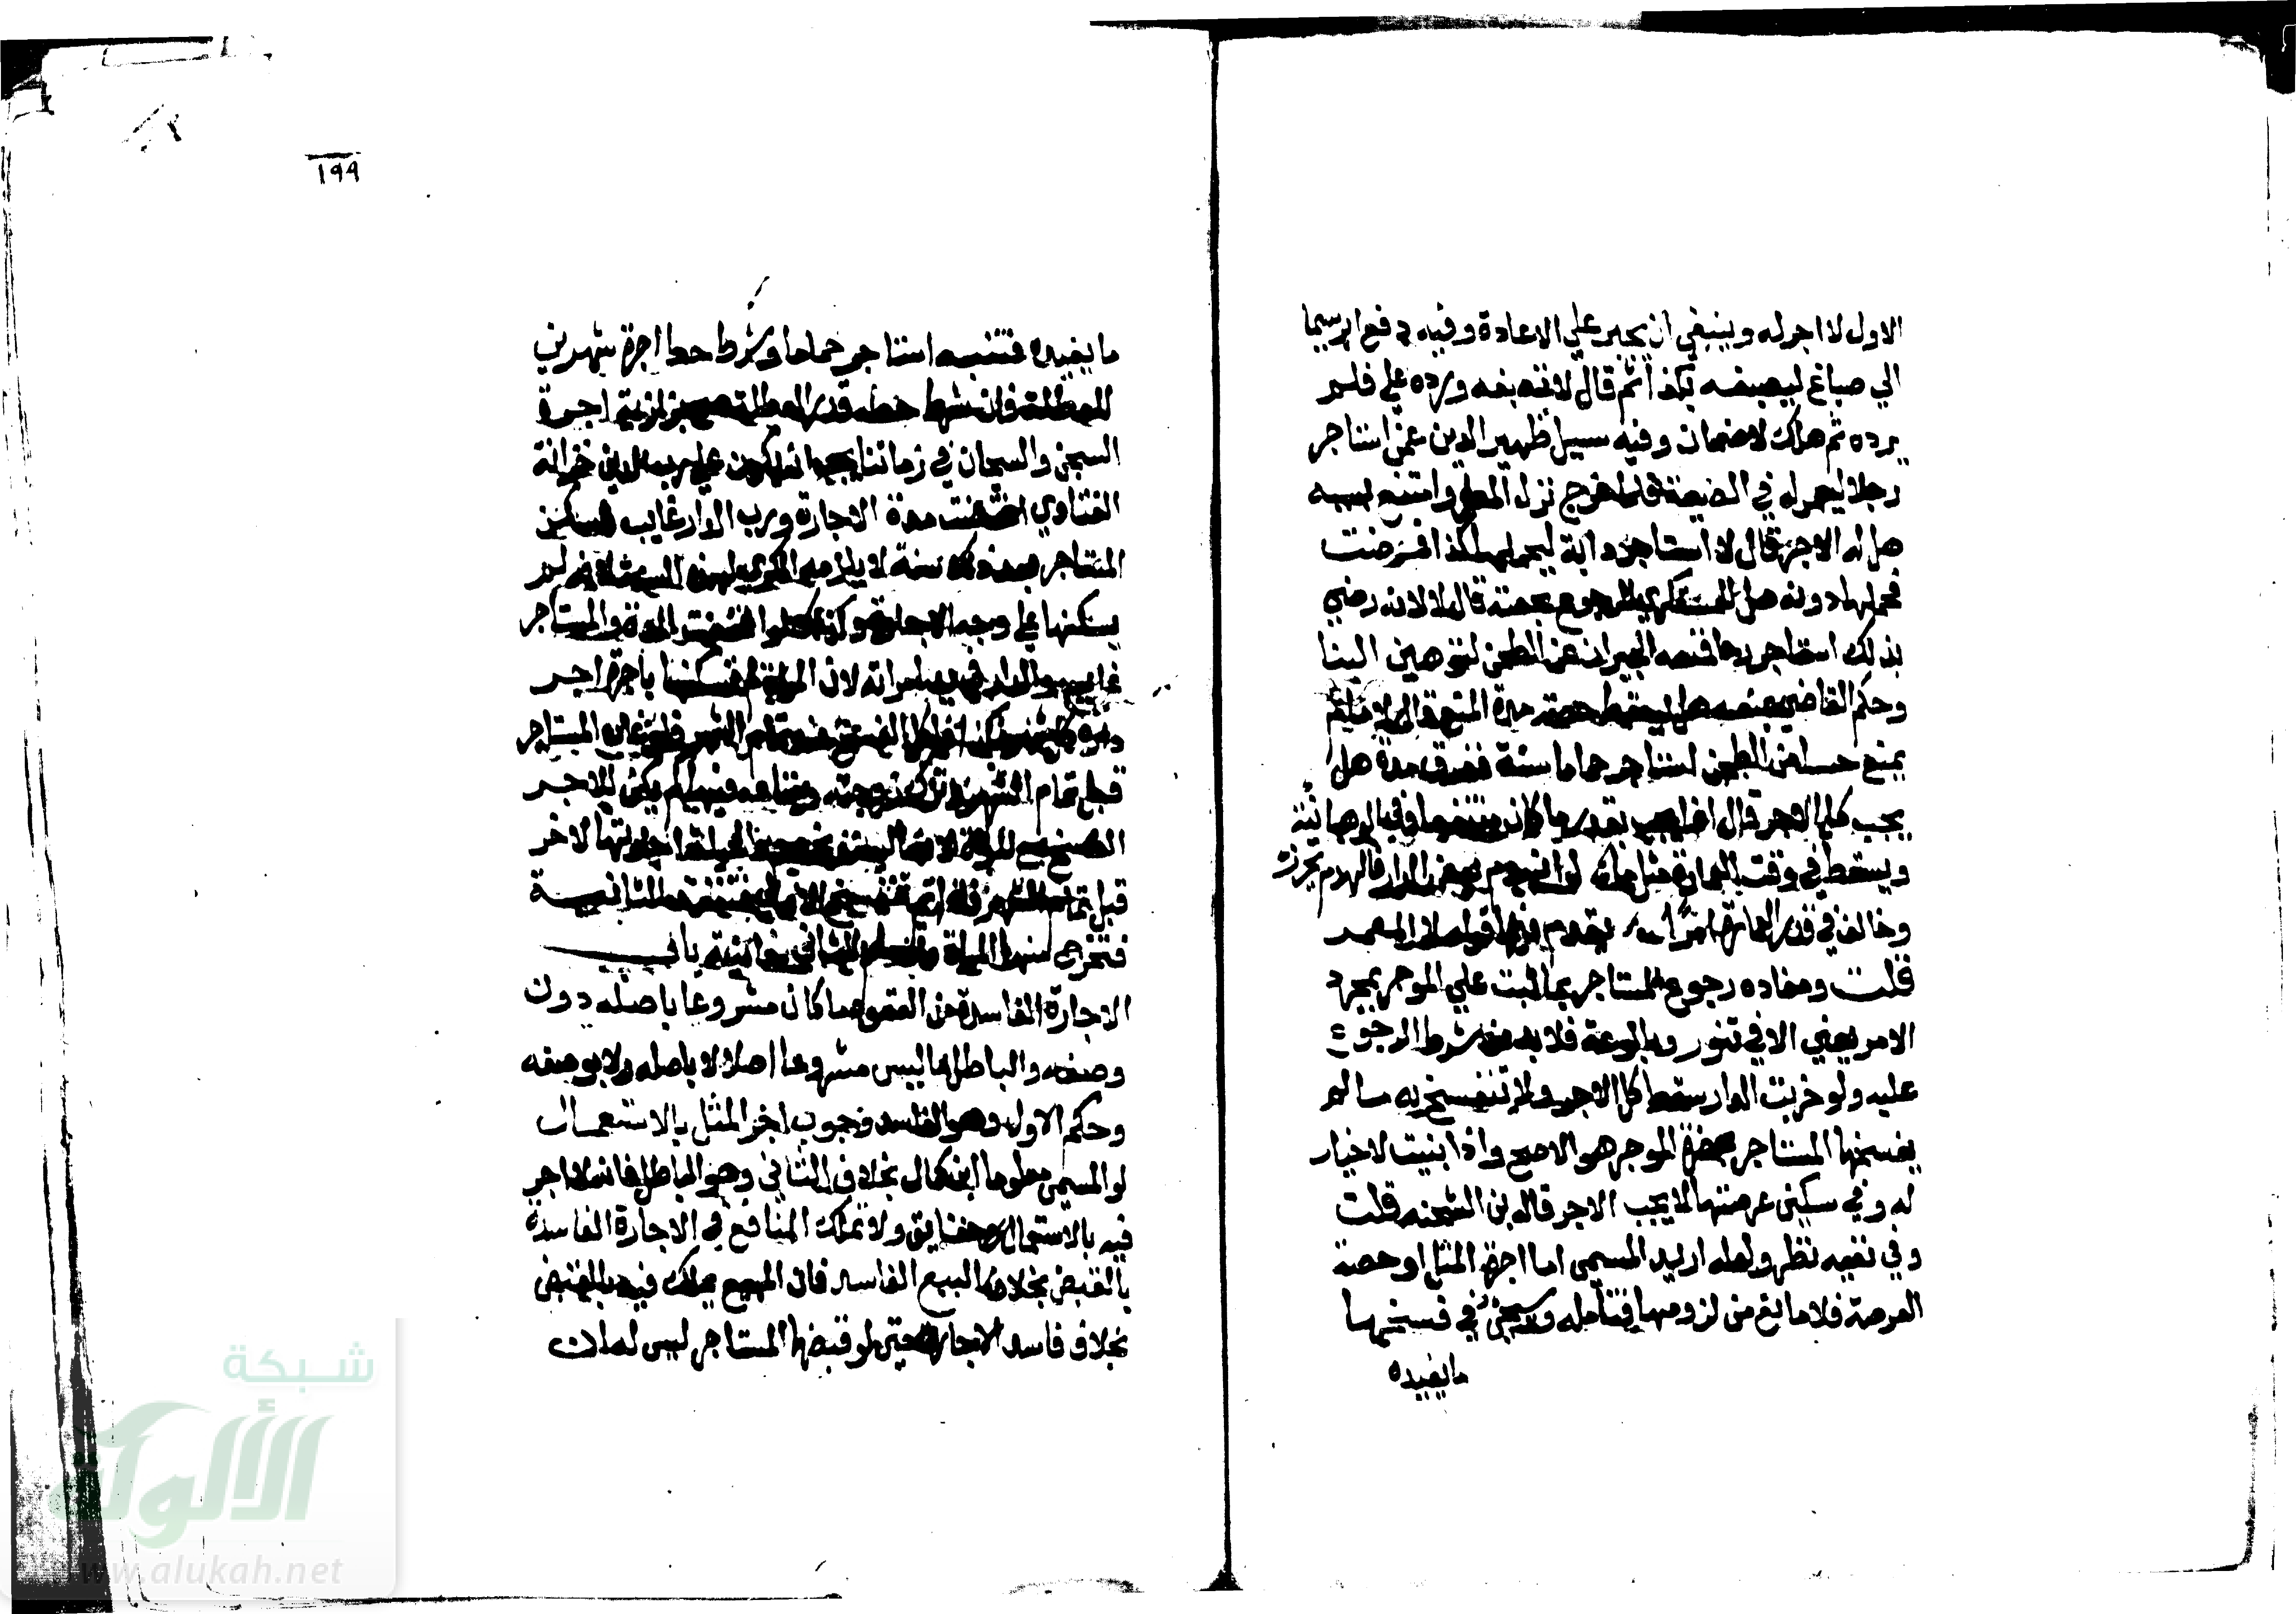 الاول لا اجر له وينبغي ان يجبر على الاعادة وفيه دفع ابريسما
الي صباغ ليصبغه بكذا ثم قال لا تصبغه ورده علي فلم
يرده ثم هلك لا ضمان وفيه سيل ظهير الدين عمن استاجر
رجلا ليعمل له في الضيعة فلما خرج نزل المطر وامتنع بسببه
هل له الاجر قال لا استاجر دابة ليحملها كذا فمرضت
فحملها دونه هل للمستكري الرجوع بحصته قال لا لانه رضي
بذلك استاجر رحا فمنعه الجيران عن الطحن لتوهين البنا
وحكم القاضي بمنعه هل يسقط حصته مدة المنع قال لا ما لم
يمنع حسا من الطحن استاجر حماما سنة فغرق مدة هل
يجب كل الاجر قال انما يجب بقدر ما كان منتفعا وفي الوهبانية
ويسقط في وقت العمارة مثل ما لو انهدم بعض الدار فالهدم يحزر
وخالف في قدر العمارة يقدم فيها قوله لا المعمر
قلت ومفاده رجوع المستاجر بما اثبت علي الموجر بمجرد
الامر يعني الا في تنور وبالوعة فلا بد من شرط الرجوع
عليه ولو خربت الدار سقط كل الاجر ولا تنفسخ به ما لم
يفسخها المستاجر بحضرة الموجر هو الاصح واذا بنيت لا خيار
له وفي سكنى عرصتها لا يجب الاجر قاله بن الشحنه قلت
وفي نفيه نظر ولعله اريد المسمى اما اجرة المثل او حصة
العرصة فلا مانع من لزومها فتامله وسيجئ في فسخها
ما يفيده
١٩٩
ما يفيده فتنبه استاجر حماما وشرط حط اجرة شهرين
للعطلة فان شرط حطه قدر العطلة صح بزازية اجرة
السجن والسجان في زماننا يجب ان تكون علي رب الدين خزانة
الفتاوي انقضت مدة الاجارة ورب الدار غايب فسكن
المستاجر بعد ذلك سنة لا يلزمه الكري لهذه السنة لانه لم
يسكنها علي وجه الاجارة وكذا لو انقضت المدة والمستاجر
غايب والدار في يد امراته لان المراة لم تسكنها باجرة اجر
داره كل شهر بكذا فلكل الفسخ عند تمام الشهر فلو غاب المستاجر
قبل تمام الشهر وترك زوجته ومتاعه فيها لم يكن للاجر
الفسخ مع المراة لانها ليست بخصم والحيلة اجارتها لاخر
قبل تمام الشهر فاذا تم تنفسخ الاولي فتنفذ الثانيـة
فتخرج منها المراة وتسلم للثاني خانية باب
الاجارة الفاسدة من العقود ما كان مشروعا باصله دون
وصفه والباطل ما ليس مشروعا اصلا لا باصله ولا بوصفه
وحكم الاول وهو الفاسد وجوب اجر المثل بالاستعمال
لو المسمى معلوما ابن كمال بخلاف الثاني وهو الباطل فانه لا اجر
فيه بالاستعمال حقايق ولا تملك المنافع في الاجارة الفاسدة
بالقبض بخلاف البيع الفاسد فان المبيع يملك فيه بالقبض
بخلاف فاسد الاجارة حتى لو قبضها المستاجر ليس له ان
شبكة
الألوكة
www.alukah.net